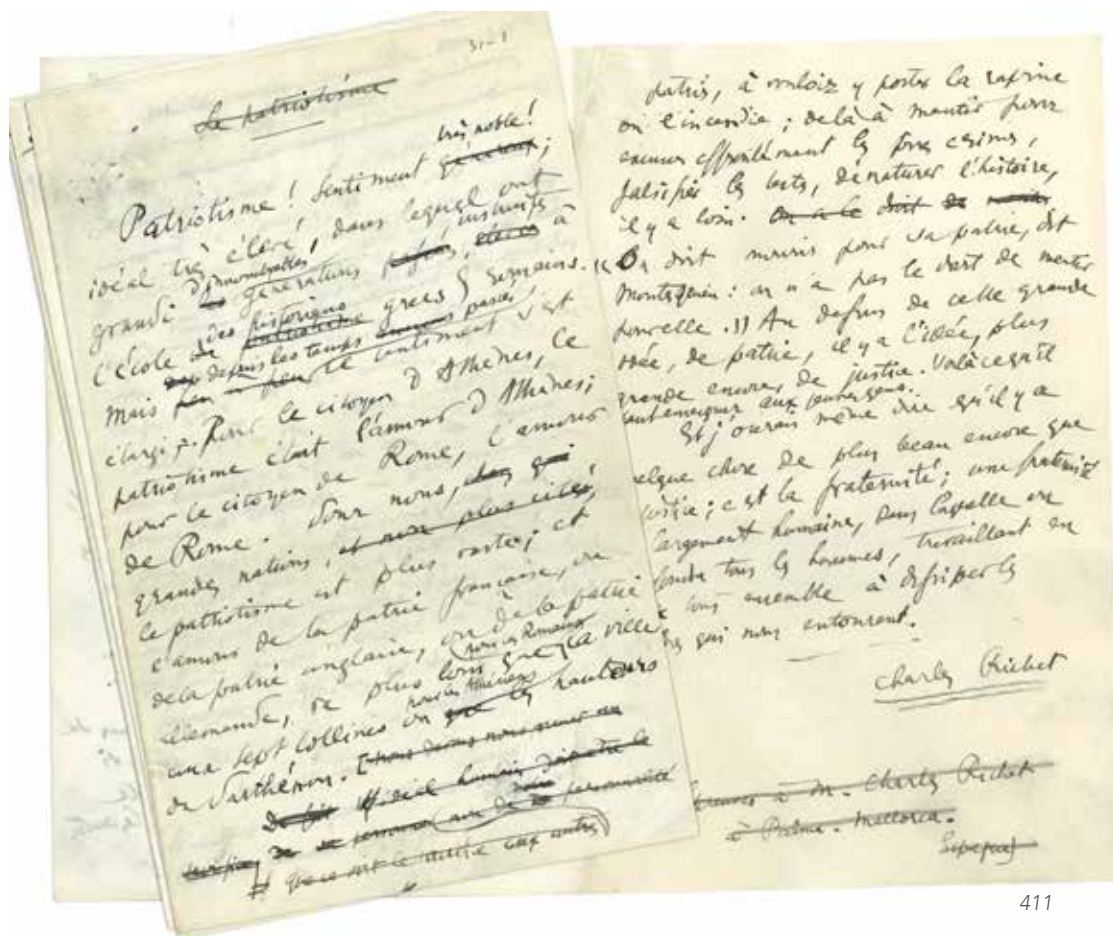 31-1
Le patriotisme
très noble!
Patriotisme ! Sentiment généreux ;
idéal très élevé, dans lequel ont
d'innombrables instruits
grandi générations à
des historiens
l'école grecs & romains.
depuis les temps passés
Mais le sentiment s'est
élargi. Pour le citoyen d'Athènes, le
patriotisme était l'amour d'Athènes ;
pour le citoyen de Rome, l'amour
de Rome. Pour nous,
grandes nations, et non plus cités,
le patriotisme est plus vaste ; et
l'amour de la patrie française, ou
de la patrie anglaise, ou de la patrie
pour les Romains
llemande, va plus loin que la ville
pour les Athéniens
aux sept collines ou que les hauteurs
du Parthénon.
que ce soit le nôtre aux autres
patrie, à vouloir y porter la rapine
ou l'incendie ; de là à mentir pour
excuser effrontément les pires crimes,
falsifier les textes, dénaturer l'histoire,
il y a loin. On a le droit de
« On doit mourir pour sa patrie, dit
Montesquieu : on n'a pas le droit de mentir
pour elle. » Au dessus de cette grande
idée, de patrie, il y a l'idée, plus
grande encore, de justice. Voilà ce qu'il
faut enseigner aux jeunes gens.
Et j'oserais même dire qu'il y a
elque chose de plus beau encore que
justice ; c'est la fraternité ; une fraternité
largement humaine, dans laquelle on
tous les hommes, travaillant en
tous ensemble à dissiper les
qui nous entourent.
Charles Richet
à M. Charles Richet
à Palma - Mallorca.
411